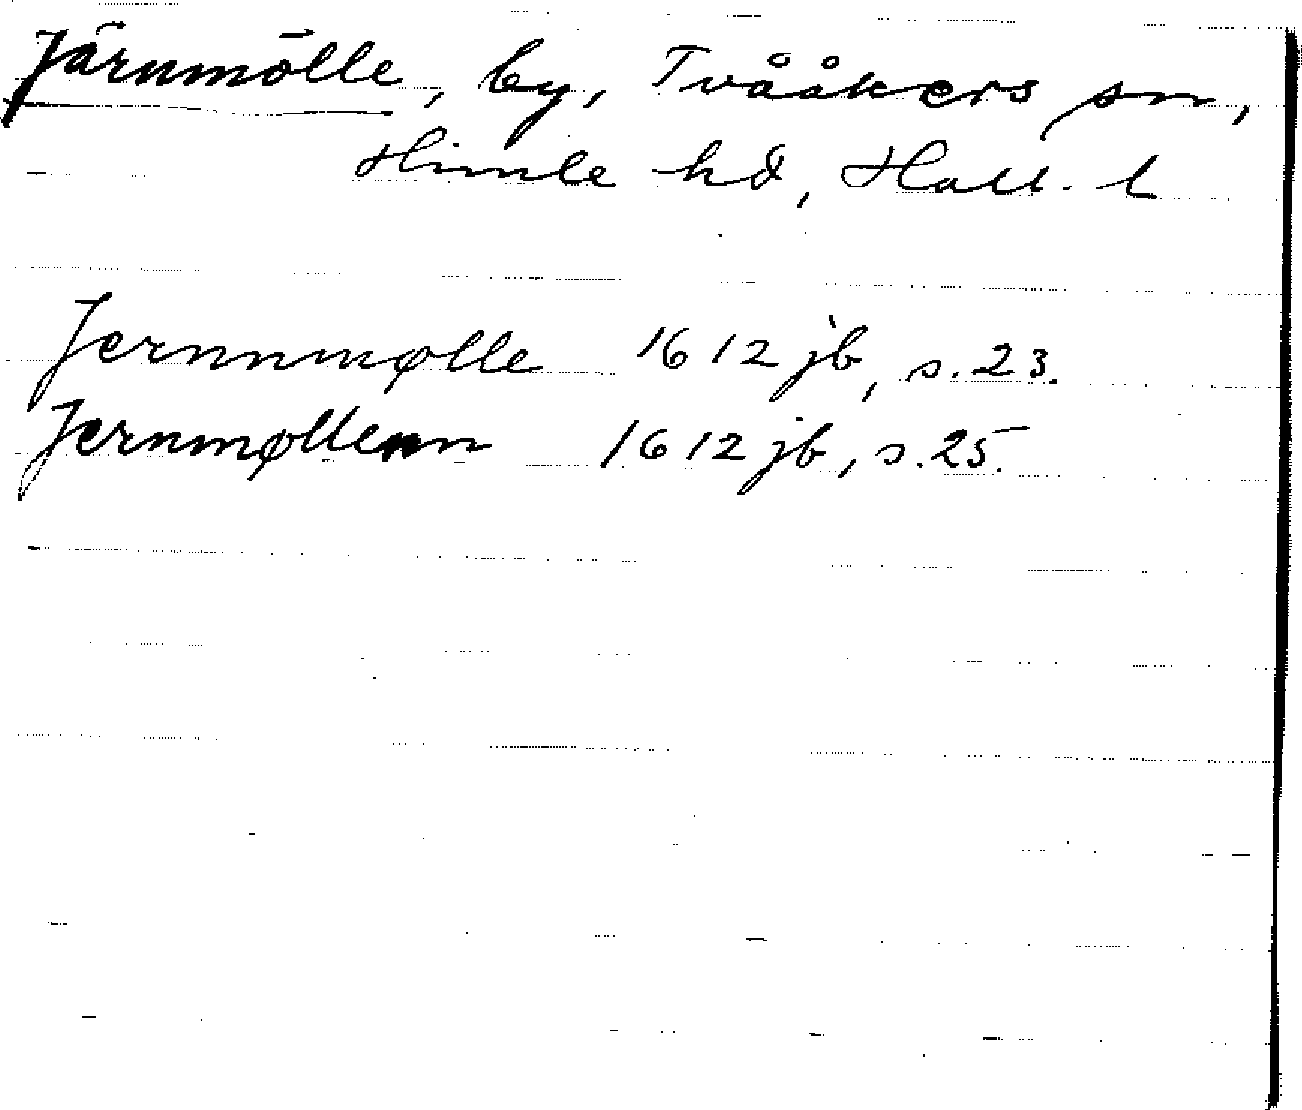 Järnmölle, by, Tvååkers sn,
Himle hd, Hall. l
Jernnmølle 1612 jb, s. 23.
Jernmøllenn 1612 jb, s. 25.